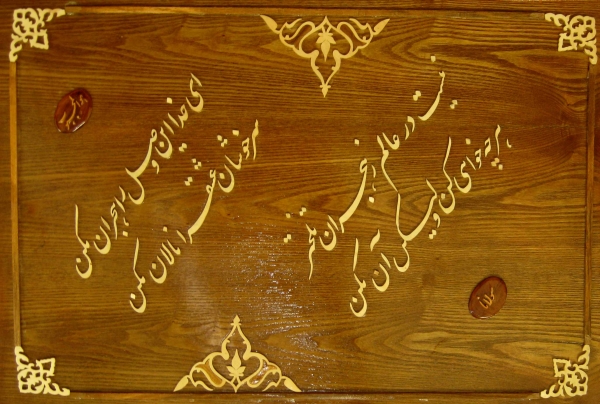 ای خدا این وصل را هجران مکن
سرخوشان عشق را نالان مکن
نیست در عالم ز هجران تلختر
هرچه خواهی کن ولیکن آن مکن
مولانا